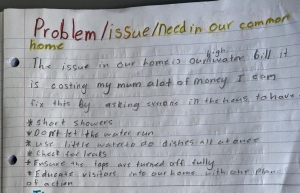 Problem/issue/need in our common
home
The issue in our home is our high water bill it
is costing my mum alot of money I can
fix this by asking in the house to have
* Short showers
* Dont let the water run
* use little water to do dishes all at once
* Check for leaks
* Ensure the taps are turned off fully
* Educate visitors into our home with our plan
of action